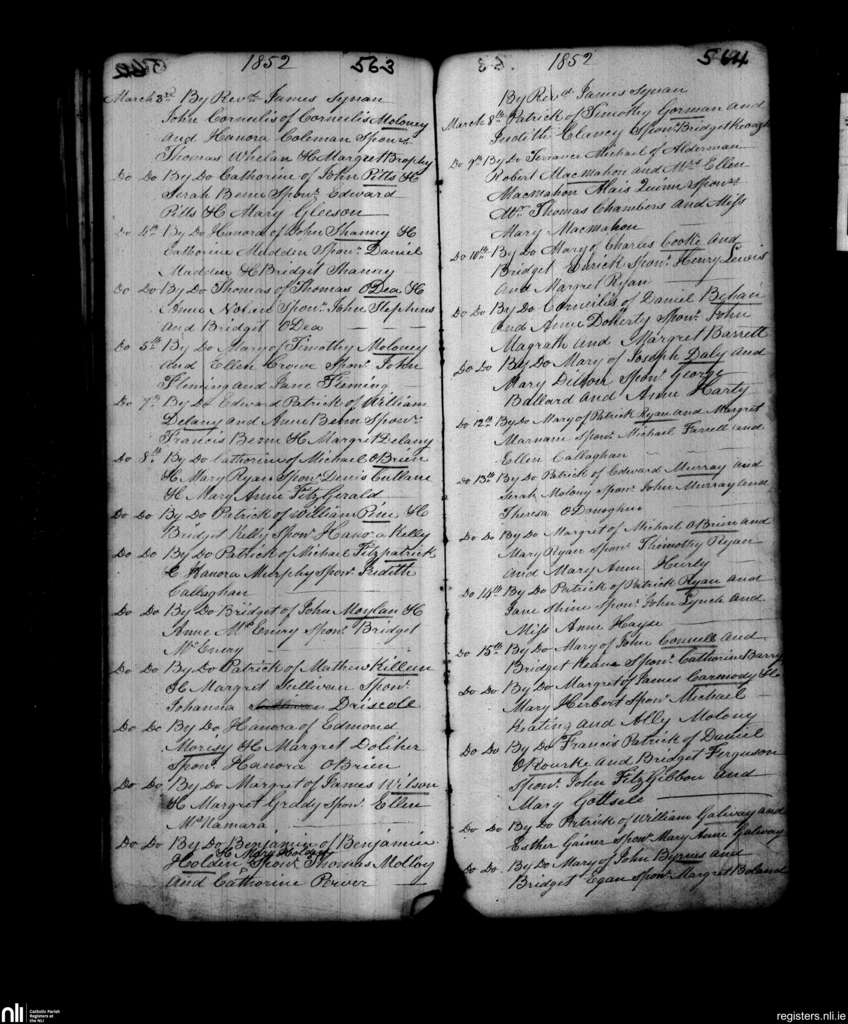 1852 563
March 3rd By Revd. James Synan
John Cornelis of Cornelis Moloney
and Hanora Coleman Spon.
Thomas Whelan & Margret Brophy
Do Do By Do Catherine of John Pitts &
Sarah Benn Spon. Edward
Pitts & Mary Gleeson
Do 4th By Do Hanora of John Shanny &
Catherine Madden Spon. Daniel
Madden & Bridget Shanny
Do Do By Do Thomas of Thomas ODea &
Anne Nolan Spon. John Stephens
and Bridget ODea
Do 5th By Do Mary of Timothy Moloney
and Ellen Crowe Spon. John
Fleming and Jane Fleming
Do 7th By Do Edward Patrick of William
Delany and Anne Benn Spon.
Francis Benn & Margret Delany
Do 8th By Do Catherine of Michael OBrien
& Mary Ryan Spon. Denis
& Mary Anne FitzGerald
Do Do By Do Patrick of William &
Bridget Kelly Spon. Hanora Kelly
Do Do By Do Patrick of Michael Fitzpatrick
& Hanora Murphy Spon. Judith
Callaghan
Do Do By Do Bridget of John Moylan &
Anne McEniry Spon. Bridget
McEniry
Do Do By Do Patrick of Mathew Killeen
& Margret Sullivan Spon.
Johanna Driscole
Do Do By Do Hanora of Edmond
Morisy & Margret Doliher
Spon. Hanora OBrien
Do Do By Do Margret of James Wilson
& Margret Graddy Spon. Ellen
McNamara
Do Do By Do Benjamin of Benjamin
& Mary Holden
Holden Spon. Thomas Molloy
and Catherine Power
1852 564
By Revd James Synan
March 8th Patrick of Timothy Gorman and
Judith Clency Spon. Bridget Keough
Do 9th By Do Terrance Michael of Alderman
Robert Macmahon and Mrs Ellen
Macmahon Alais Quinn Spon.
Mr. Thomas Chambers and Miss
Mary Macmahon
Do 10th By Do Mary of Charles Cooke and
Bridget Spon. Henry Lewis
and Margret Ryan
Do Do By Do Cornelius of Daniel Behan
and Anne Doherty Spon. John
Magrath and Margret Barrett
Do Do By Do Mary of Joseph Daly and
Mary Dillon Spon. George
Ballard and Anne Harty
Do 12th By Do Mary of Patrick Ryan and Margret
Marnane Spon. Michael Farrell and
Ellen Callaghan
Do 13th By Do Patrick of Edward Murray and
Sarah Molony Spon. John Murray and
Theresa ODonoghue
Do Do By Do Margret of Michael OBrien and
Mary Ryan Spon. Thimothy Ryan
and Mary Anne Hurdy
Do 14th By Do Patrick of Patrick Ryan and
Jane Shine Spon. John Lynch and
Miss Anne Hayse
Do 15th By Do Mary of John Connell and
Bridget Keane Spon. Catherine Barry
Do Do By Do Margret of James Carmody &
Mary Herbert Spon. Michael
Keating and Ally Molony
Do Do By Do Francis Patrick of Daniel
ORourke and Bridget Ferguson
Spon. John FitzGibbon and
Mary Gottsele
Do Do By Do Patrick of William Galway and
Esther Gainer Spon. Mary Anne Galway
Do Do By Do Mary of John Byrnes and
Bridget Egan Spon. Margret Boland
nli Catholic Parish
Registers at
the NLI
registers.nli.ie